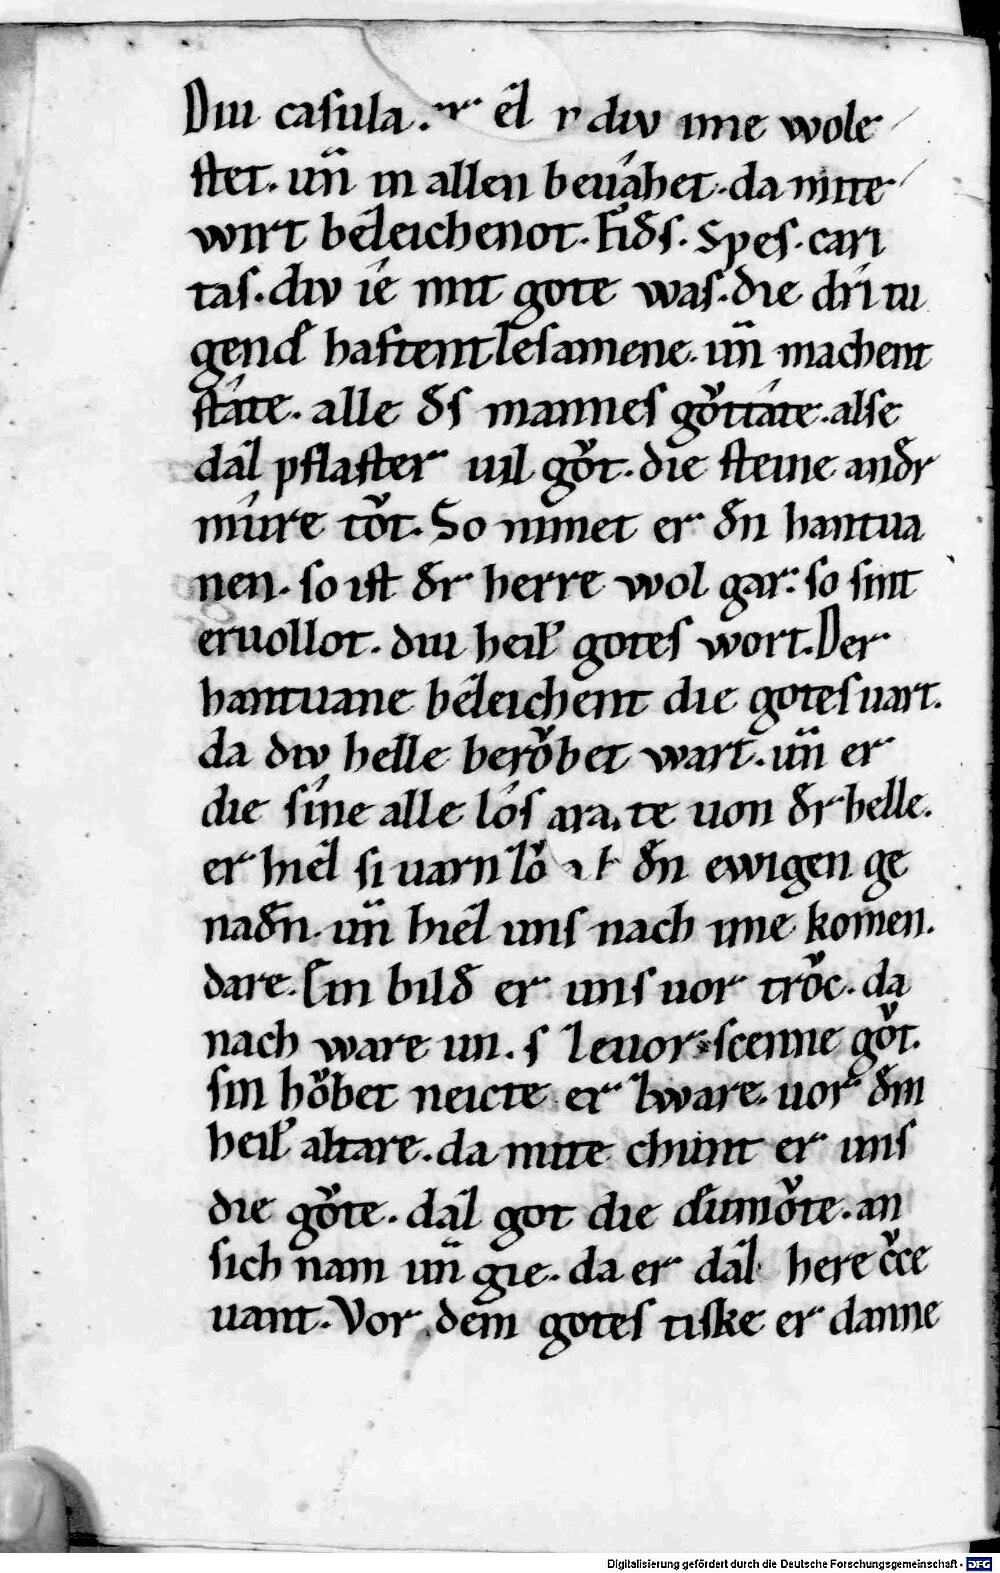 Diu casula. diu ime wole
stet. uñ in allen beuahet. da mite
wirt bezeichenot. Fiđs. Spes. cari
tas. diu íe mit gote was. die drí tu
gend haftent zesamene. uñ machent
státe. alle đs mannes gǒttáte. alse
daz pflaster uil gǒt. die steine an đr
múre tǒt. So nimet er đn hantua
nen. so ist đr herre wol gar. so sint
eruollot. diu heil gotes wort. Der
hantuane bezeichent die gotes uart.
da diu helle berǒbet wart. uñ er
die síne alle lós te uon đr helle.
er hiez si uarn đn ewigen ge
nađn. uñ hiez uns nach ime komen.
dare. Ein bilđ er uns uor trǒc. da
nach ware uns zeuor scenne gǒt.
sin hǒbet neicte er zware. uor đm
heil altare. da mite chunt er uns
die gǒte. daz got die diumǒte. an
sich nam uñ gie. da er daz here cr̃ce
uant. Vor dem gotes tiske er danne
Digitalisierung gefördert durch die Deutsche Forschungsgemeinschaft - DFG